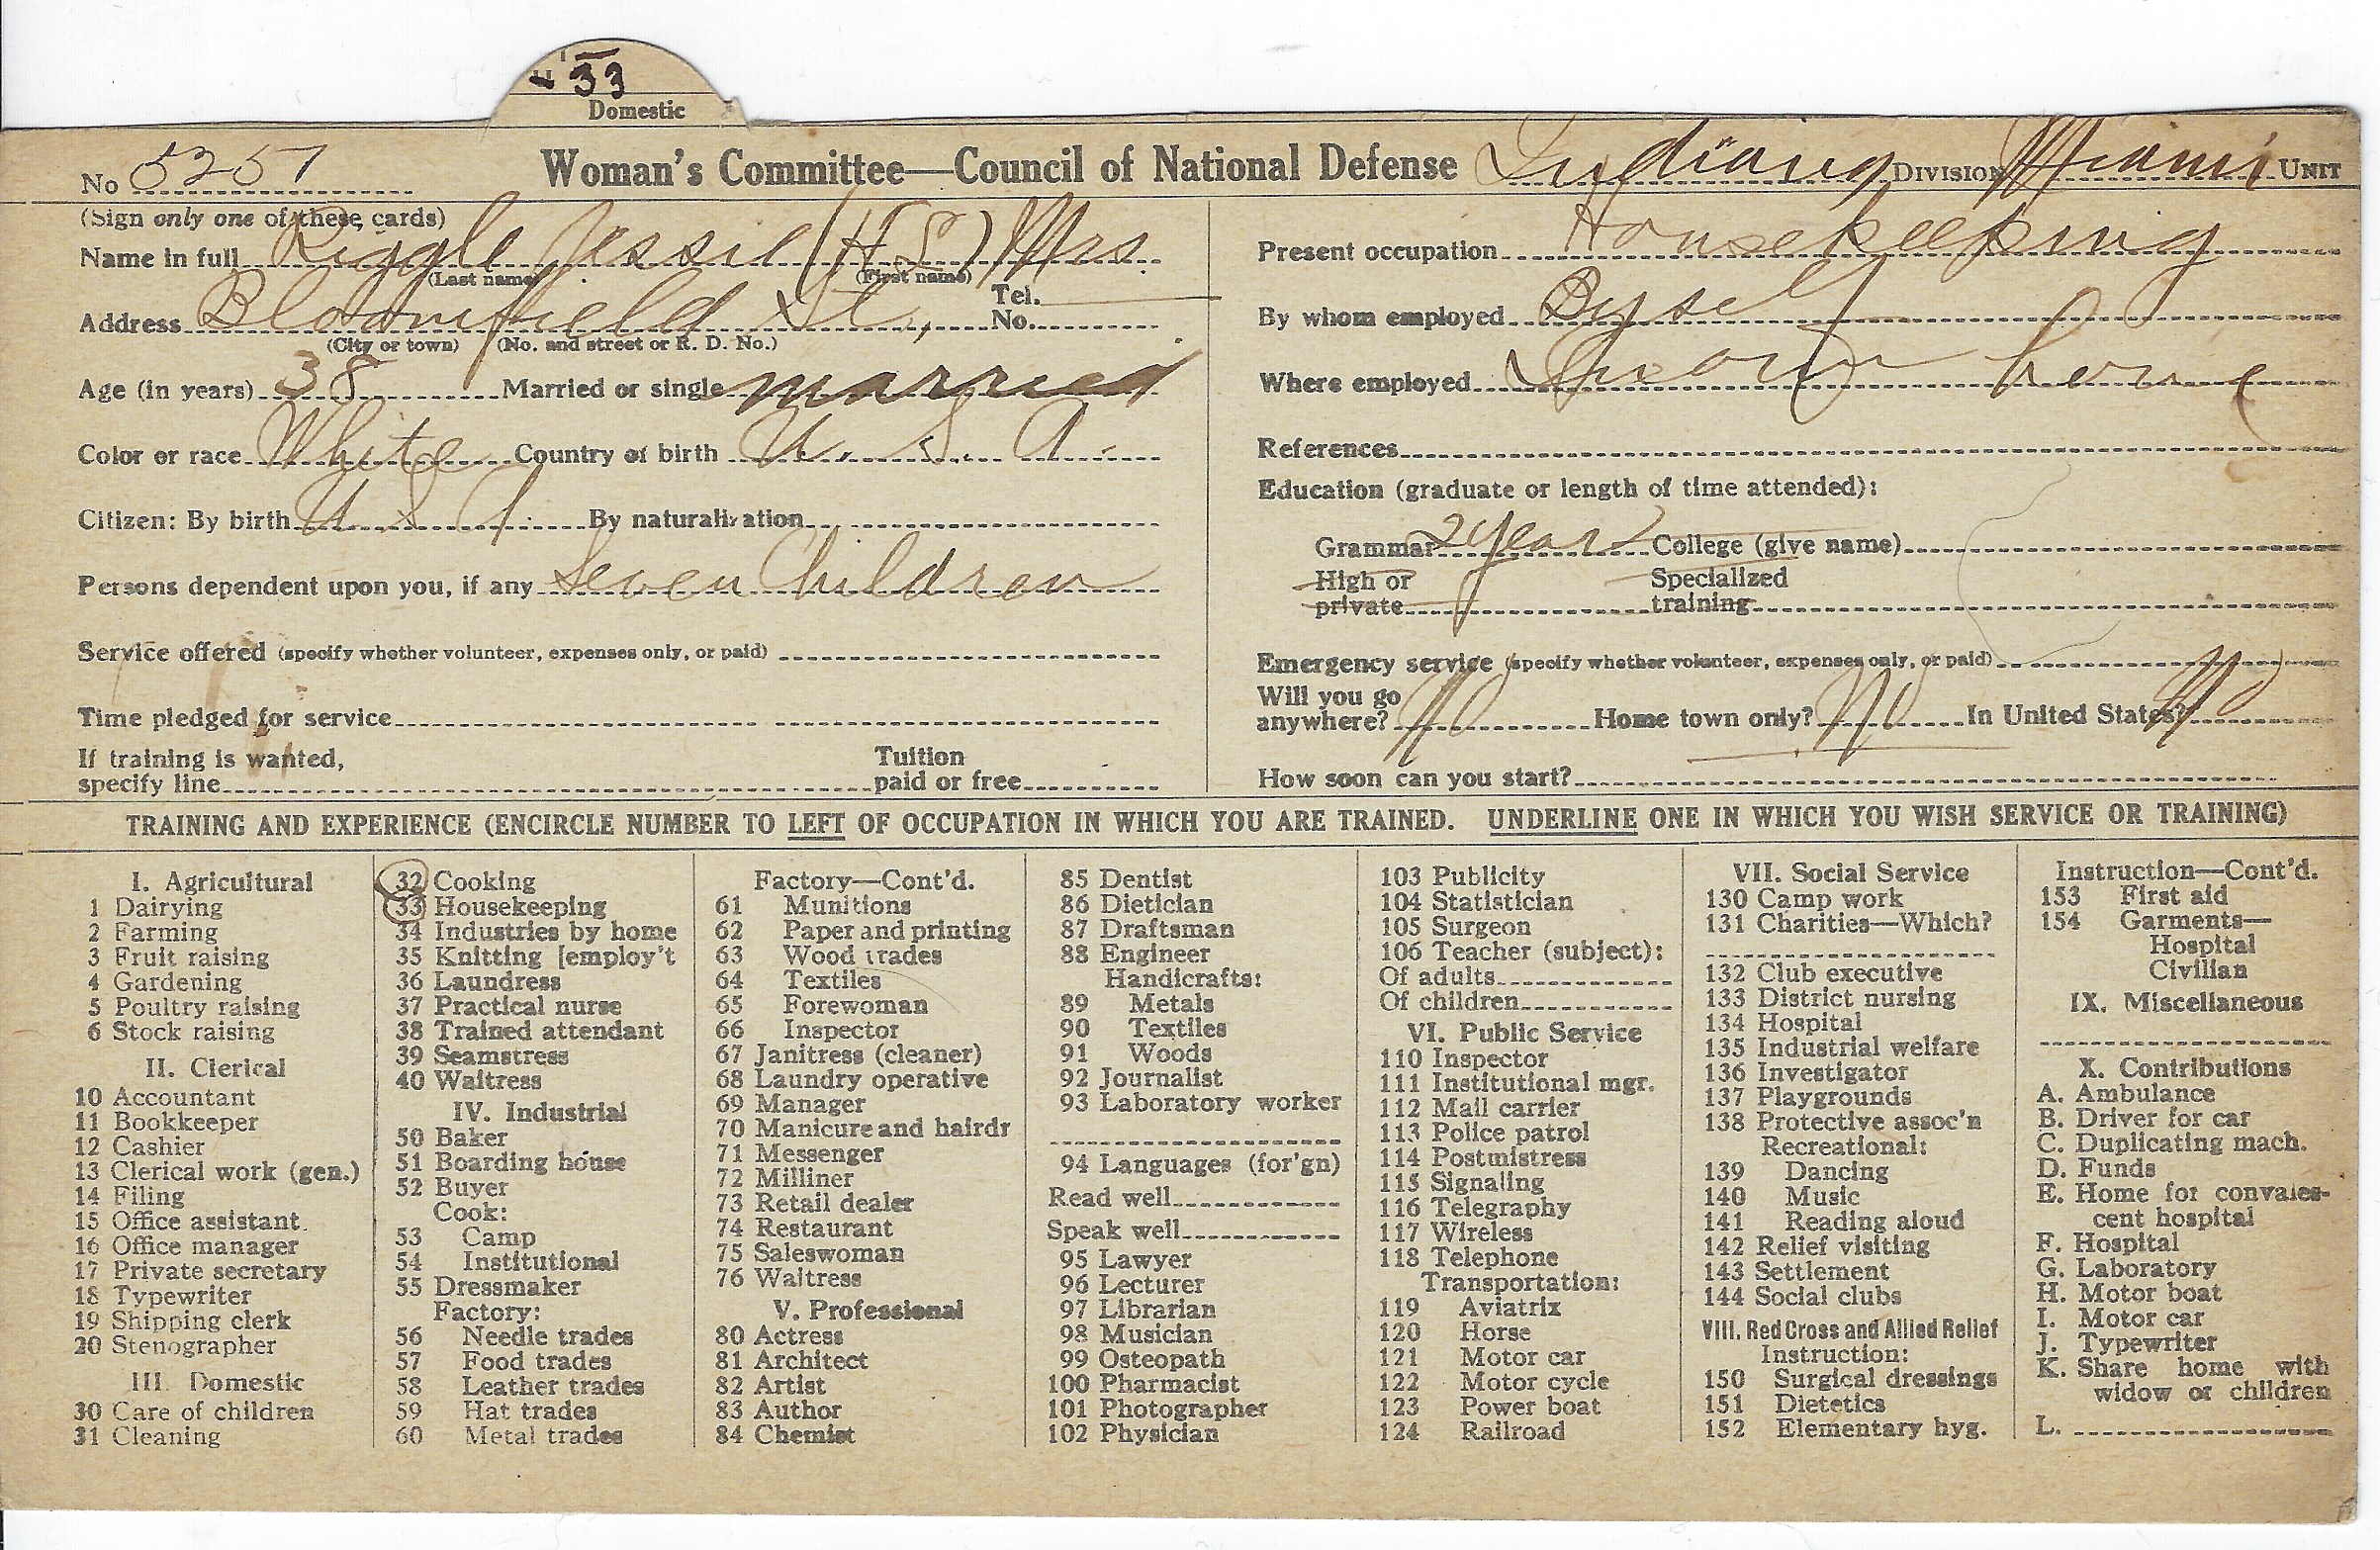 33
Domestic
No 5257 Woman's Committee—Council of National Defense Indiana DIVISION Miami UNIT
(Sign only one of these cards)
Name in full Riggle Jessie (H S) Mrs
(Last name) (First name)
Address Bloomfield St., Tel. No.
(City or town) (No. and street or R. D. No.)
Age (in years) 38 Married or single married
Color or race White Country of birth U. S. A.
Citizen: By birth U S A. By naturalization
Persons dependent upon you, if any Seven Children
Service offered (specify whether volunteer, expenses only, or paid)
Time pledged for service
If training is wanted,
specify line Tuition paid or free
Present occupation Housekeeping
By whom employed By self
Where employed In own home
References
Education (graduate or length of time attended):
Grammar 2 years College (give name)
High or private Specialized training
Emergency service (specify whether volunteer, expenses only, or paid)
Will you go anywhere? No Home town only? No In United States? No
How soon can you start?
TRAINING AND EXPERIENCE (ENCIRCLE NUMBER TO LEFT OF OCCUPATION IN WHICH YOU ARE TRAINED. UNDERLINE ONE IN WHICH YOU WISH SERVICE OR TRAINING)
I. Agricultural
1 Dairying
2 Farming
3 Fruit raising
4 Gardening
5 Poultry raising
6 Stock raising
II. Clerical
10 Accountant
11 Bookkeeper
12 Cashier
13 Clerical work (gen.)
14 Filing
15 Office assistant
16 Office manager
17 Private secretary
18 Typewriter
19 Shipping clerk
20 Stenographer
III. Domestic
30 Care of children
31 Cleaning
32 Cooking
33 Housekeeping
34 Industries by home
35 Knitting [employ't
36 Laundress
37 Practical nurse
38 Trained attendant
39 Seamstress
40 Waitress
IV. Industrial
50 Baker
51 Boarding house
52 Buyer
Cook:
53 Camp
54 Institutional
55 Dressmaker
Factory:
56 Needle trades
57 Food trades
58 Leather trades
59 Hat trades
60 Metal trades
Factory—Cont'd.
61 Munitions
62 Paper and printing
63 Wood trades
64 Textiles
65 Forewoman
66 Inspector
67 Janitress (cleaner)
68 Laundry operative
69 Manager
70 Manicure and hairdr
71 Messenger
72 Milliner
73 Retail dealer
74 Restaurant
75 Saleswoman
76 Waitress
V. Professional
80 Actress
81 Architect
82 Artist
83 Author
84 Chemist
85 Dentist
86 Dietician
87 Draftsman
88 Engineer
Handicrafts:
89 Metals
90 Textiles
91 Woods
92 Journalist
93 Laboratory worker
94 Languages (for'gn)
Read well
Speak well
95 Lawyer
96 Lecturer
97 Librarian
98 Musician
99 Osteopath
100 Pharmacist
101 Photographer
102 Physician
103 Publicity
104 Statistician
105 Surgeon
106 Teacher (subject):
Of adults
Of children
VI. Public Service
110 Inspector
111 Institutional mgr.
112 Mail carrier
113 Police patrol
114 Postmistress
115 Signaling
116 Telegraphy
117 Wireless
118 Telephone
Transportation:
119 Aviatrix
120 Horse
121 Motor car
122 Motor cycle
123 Power boat
124 Railroad
VII. Social Service
130 Camp work
131 Charities—Which?
132 Club executive
133 District nursing
134 Hospital
135 Industrial welfare
136 Investigator
137 Playgrounds
138 Protective assoc'n
Recreational:
139 Dancing
140 Music
141 Reading aloud
142 Relief visiting
143 Settlement
144 Social clubs
VIII. Red Cross and Allied Relief
Instruction:
150 Surgical dressings
151 Dietetics
152 Elementary hyg.
Instruction—Cont'd.
153 First aid
154 Garments—
Hospital
Civilian
IX. Miscellaneous
X. Contributions
A. Ambulance
B. Driver for car
C. Duplicating mach.
D. Funds
E. Home for convales-
cent hospital
F. Hospital
G. Laboratory
H. Motor boat
I. Motor car
J. Typewriter
K. Share home with
widow or children
L.